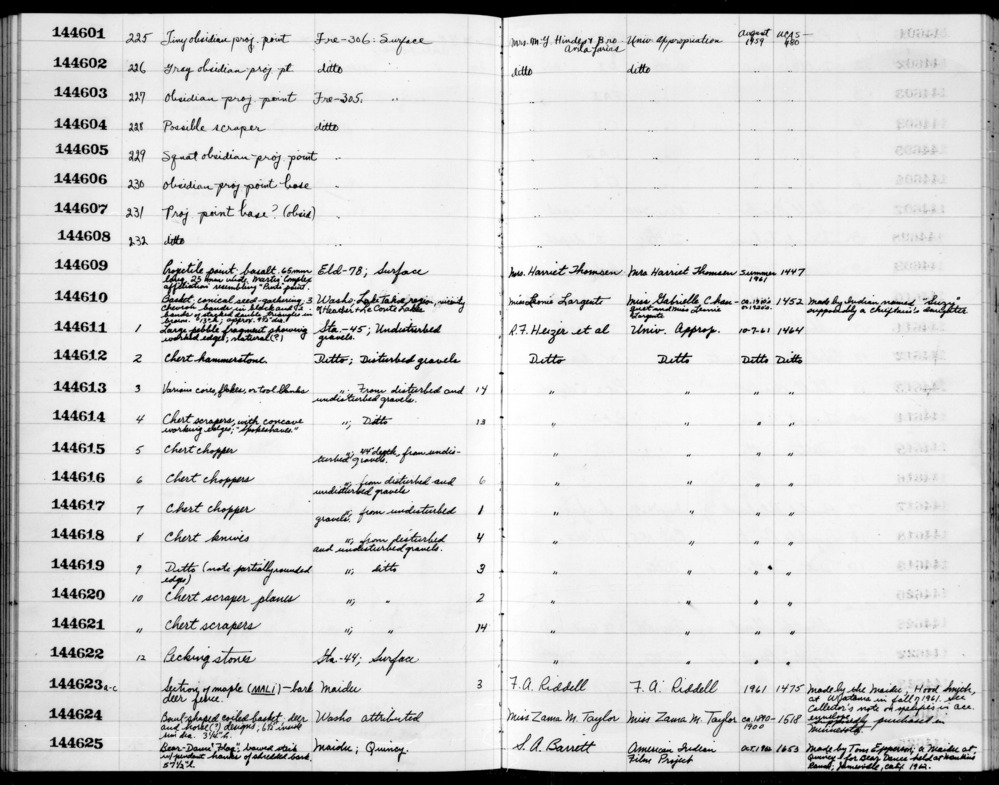 144601 225 Tiny obsidian proj. point Fre-306: Surface Mrs. M. J. Hindes & Bro Avila farias Univ Appropriation August 1959 UCAS-480
144602 226 Gray obsidian proj pt ditto ditto ditto
144603 227 Obsidian proj. point Fre-305. " " " "
144604 228 Possible scraper ditto " " " "
144605 229 Squat obsidian proj. point " " " " "
144606 230 obsidian proj point base " " " " "
144607 231 Proj. point base? (obsid) " " " " "
144608 232 ditto " " " " "
144609 Projectile point, basalt. 65mm long, 25 mm wide. Martis Complex affiliation resembling "Pinto" point. Eld-78; Surface Mrs. Harriet Thomsen Mrs Harriet Thomsen summer 1961 1447
144610 Basket, conical seed-gathering, 3 Washo, Lake Tahoe region, vicinity of Miss Gabrielle 1452 Made by Indian named "Suzy" supposedly a chieftain's daughter
144611 1 Large pebble fragment showing worked edges; natural(?) Sta.-45; Undisturbed gravels. R.F. Heizer et al Univ. Approp. 10-7-61 1464
144612 2 Chert hammerstone. Ditto; Disturbed gravels Ditto Ditto Ditto Ditto
144613 3 Various cores, flakes, or tool blanks "; From disturbed and undisturbed gravels. 14 " " " "
144614 4 Chert scrapers, with concave working edges; "Spokeshaves." "; Ditto 13 " " " "
144615 5 Chert chopper "; 44" depth, from undisturbed gravels. " " " "
144616 6 Chert choppers "; from disturbed and undisturbed gravels 6 " " " "
144617 7 Chert chopper "; from undisturbed gravels. 1 " " " "
144618 8 Chert knives "; from disturbed and undisturbed gravels. 4 " " " "
144619 9 Ditto (note partially rounded edge) "; ditto 3 " " " "
144620 10 Chert scraper planes "; " 2 " " " "
144621 11 Chert scrapers "; " 14 " " " "
144622 12 Pecking stones Sta.-44; Surface " " " "
144623a-c Section of maple (MALI)—bark deer fence. Maidu 3 F.A. Riddell F.A. Riddell 1961 1475 Made by the Maidu, in fall of 1961. see Collector's note on
144624 Boat-shaped coiled basket, deer and designs, Washo attributed Miss Zama M. Taylor Miss Zama M. Taylor ca. 1890-1900 1518 purchased in Minnesota.
144625 Bear-Dance "Flag"; bowed stick w/pendant hanks of shredded bark. 57½"l Maidu; Quincy. S.A. Barrett American Indian Film Project 1653 Made by Tom Epperson, a Maidu at Quincy for Bear Dance held at Ranch, Janesville, Calif. 1962.